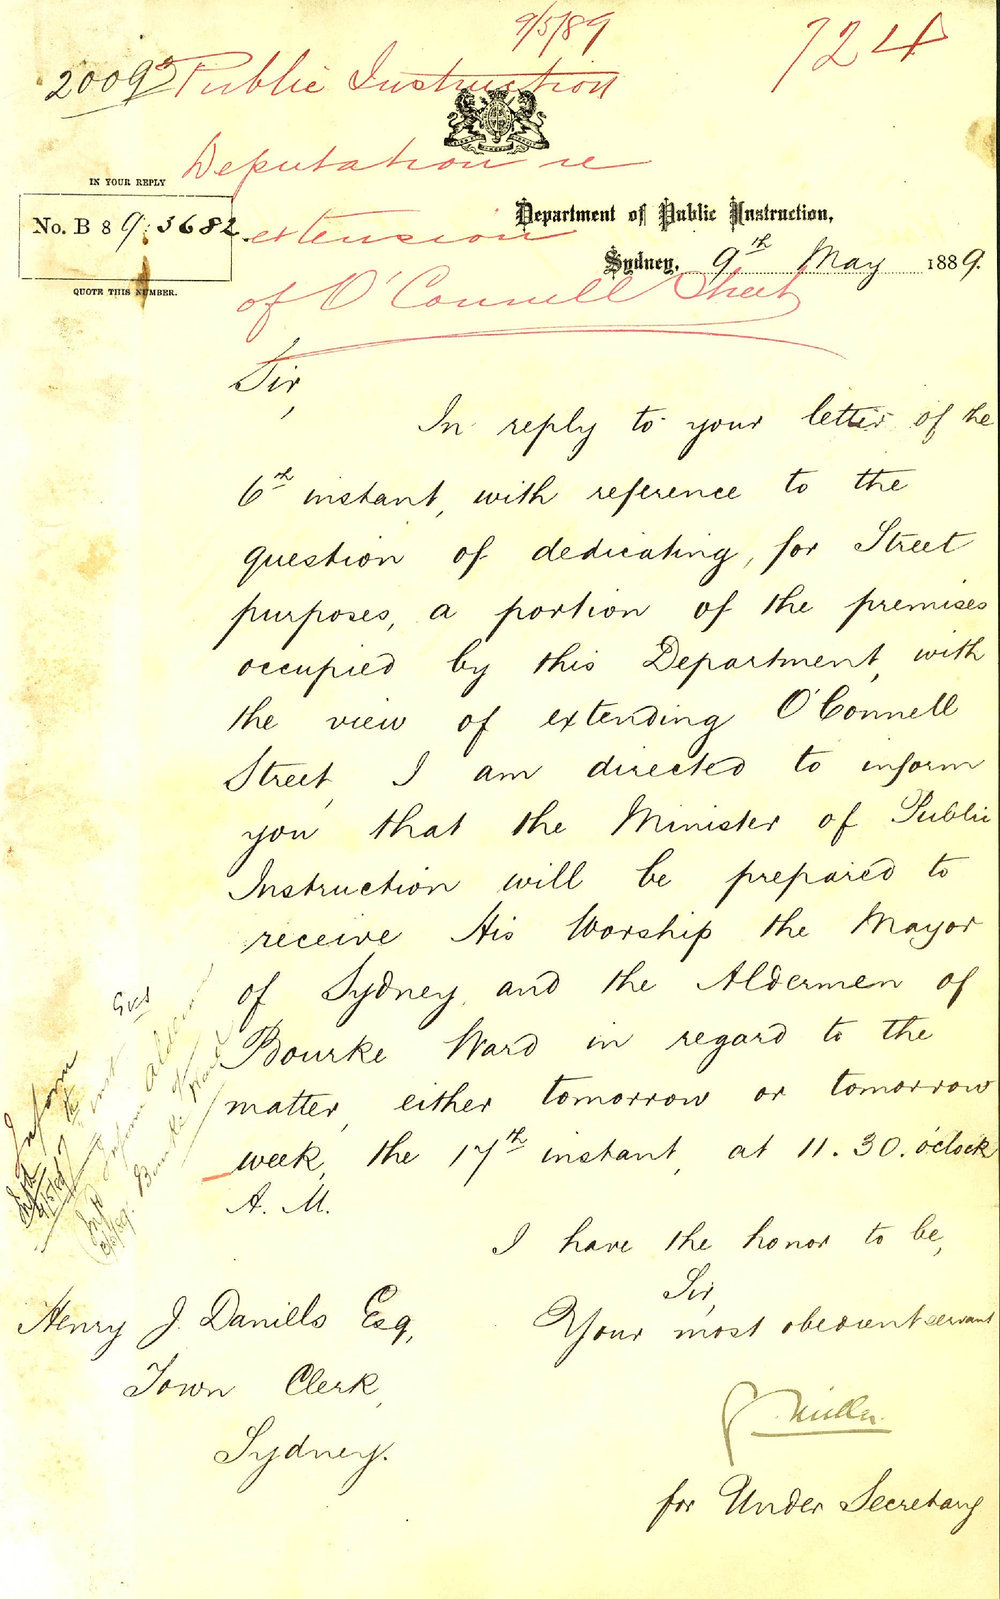 9/5/89
724
2009
Public Instruction
Deputation re
IN YOUR REPLY
No. B 89:3682
QUOTE THIS NUMBER.
extension
Department of Public Instruction,
Sydney, 9th May 1889.
of O'Connell Street
Sir,
In reply to your letter of the
6th instant, with reference to the
question of dedicating, for Street
purposes, a portion of the premises
occupied by this Department, with
the view of extending O'Connell
Street, I am directed to inform
you that the Minister of Public
Instruction will be prepared to
receive His Worship the Mayor
of Sydney and the Aldermen of
Bourke Ward in regard to the
matter, either tomorrow or tomorrow
week, the 17th instant, at 11.30. o'clock
A. M.
I have the honor to be,
Sir,
Your most obedient servant
Miller
for Under Secretary
Henry J. Daniels Esq,
Town Clerk,
Sydney.
Inform
9/5/89
Inform Aldermen
of Bourke Ward